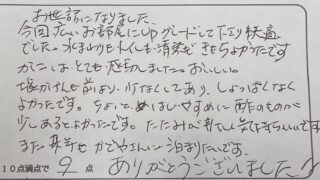 お世話になりました。
今回広いお部屋にUpグレードして下さり快適
でした。水まわりもトイレも清潔できもちよかったです
がとても感動しました。おいしい。
塩かげんも前より少なくしてあり、しょっぱくなく
よかったです。ちょっとめはしやすめに酢のものが
少しあるとよかったです。たたみが新しく気持ちいいです
また来年もかでやさんに泊まりたいです。
10点満点で 9 点 ありがとうございました